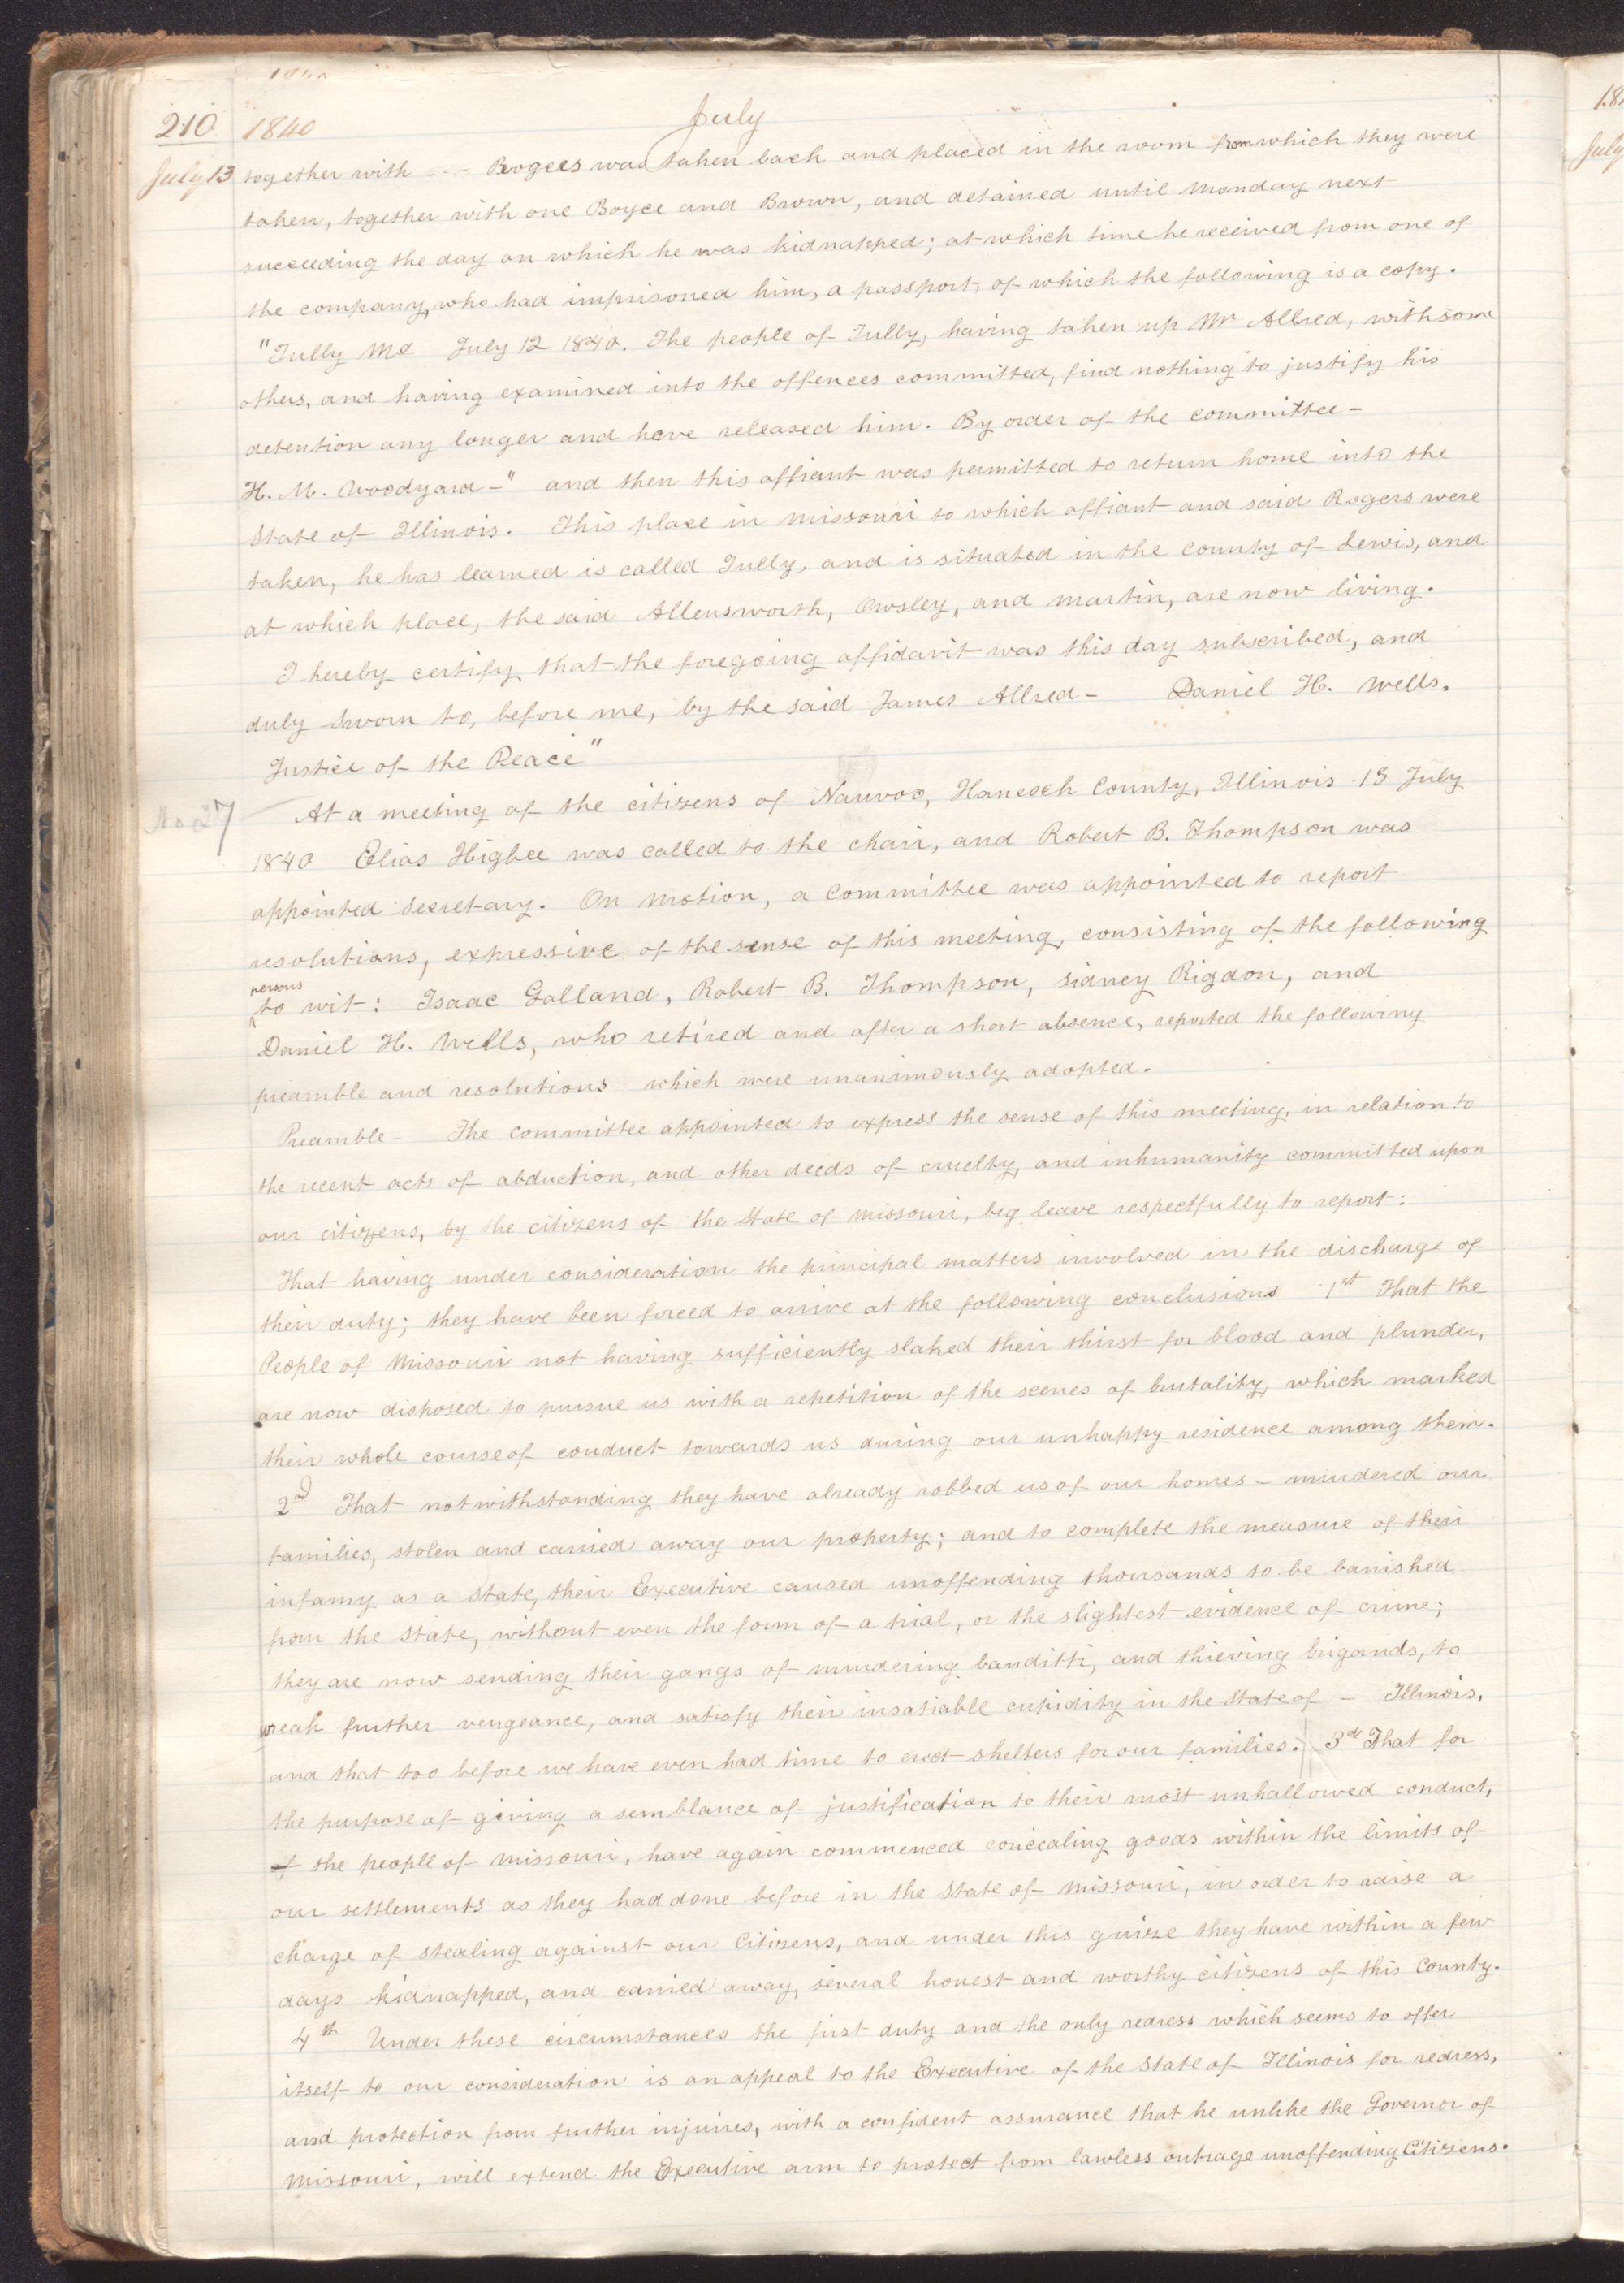 1840
210 1840 July
July 13 together with --- Rogers was taken back and placed in the room from which they were
taken, together with one Boyce and Brown, and detained until Monday next
succeeding the day on which he was kidnapped; at which time he received from one of
the company, who had imprisoned him, a passport, of which the following is a copy.
"Tully Mo July 12 1840. The people of Tully, having taken up Mr Allred, with some
others, and having examined into the offences committed, find nothing to justify his
detention any longer and have released him. By order of the committee -
H. M. Woodyard -" and then this affiant was permitted to return home into the
State of Illinois. This place in Missouri to which affiant and said Rogers were
taken, he has learned is called Tully, and is situated in the county of Lewis, and
at which place, the said Allensworth, Owsley, and Martin, are now living.
I hereby certify that the foregoing affidavit was this day subscribed, and
duly sworn to, before me, by the said James Allred - Daniel H. Wells.
Justice of the Peace"
No 27 At a meeting of the citizens of Nauvoo, Hancock County, Illinois 13 July
1840 Elias Higbee was called to the chair, and Robert B. Thompson was
appointed Secretary. On motion, a Committee was appointed to report
resolutions, expressive of the sense of this meeting, consisting of the following
persons
to wit: Isaac Galland, Robert B. Thompson, Sidney Rigdon, and
Daniel H. Wells, who retired and after a short absence, reported the following
preamble and resolutions which were unanimously adopted.
Preamble - The Committee appointed to express the sense of this meeting, in relation to
the recent acts of abduction, and other deeds of cruelty, and inhumanity committed upon
our citizens, by the citizens of the State of Missouri, beg leave respectfully to report:
That having under consideration the principal matters involved in the discharge of
their duty; they have been forced to arrive at the following conclusions 1st That the
People of Missouri not having sufficiently slaked their thirst for blood and plunder,
are now disposed to pursue us with a repetition of the scenes of brutality, which marked
their whole course of conduct towards us during our unhappy residence among them.
2nd That notwithstanding they have already robbed us of our homes - murdered our
families, stolen and carried away our property; and to complete the measure of their
infamy as a State, their Executive caused unoffending thousands to be banished
from the State, without even the form of a trial, or the slightest evidence of crime;
they are now sending their gangs of murdering banditti, and thieving brigands, to
wreak further vengeance, and satisfy their insatiable cupidity in the State of - Illinois,
and that too before we have even had time to erect shelters for our families. 3rd That for
the purpose of giving a semblance of justification to their most unhallowed conduct,
of the people of Missouri, have again commenced concealing goods within the limits of
our settlements as they had done before in the State of Missouri, in order to raise a
charge of stealing against our Citizens, and under this guize they have within a few
days kidnapped, and carried away, several honest and worthy citizens of this County.
4th Under these circumstances the first duty and the only redress which seems to offer
itself to our consideration is an appeal to the Executive of the State of Illinois for redress,
and protection from further injuries, with a confident assurance that he unlike the Governor of
Missouri, will extend the Executive arm to protect from lawless outrage unoffending Citizens.
July